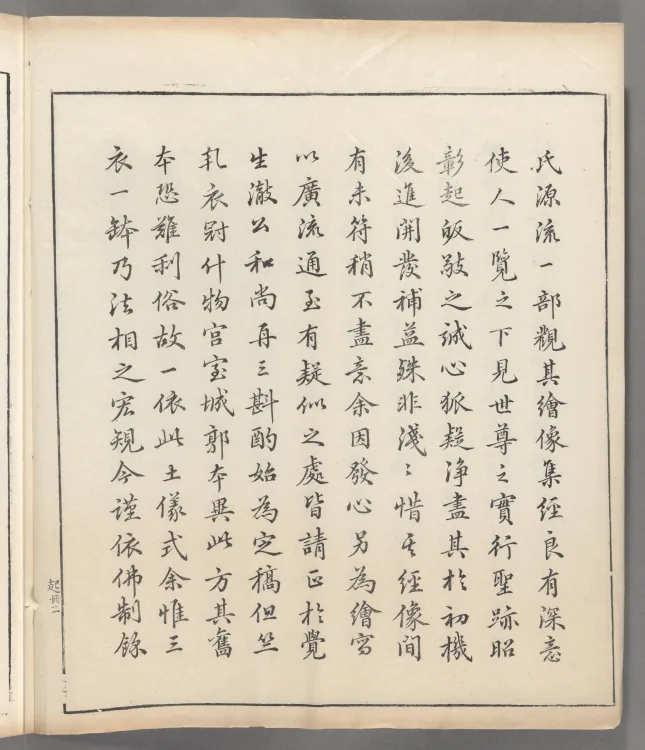 氏源流一部觀其繪像集經良有深意
使人一覽之下見世尊之實行聖跡昭
彰起皈敬之誠心狐疑淨盡其於初機
後進開發補益殊非淺〻惜其經像間
有未符稍不盡意余因發心另為繪寫
以廣流通至有疑似之處皆請正於覺
生澈公和尚再三斟酌始為定稿但竺
乹衣冠什物宮室城郭本異此方其舊
本恐難利俗故一依此土儀式余惟三
衣一鉢乃法相之宏規今謹依佛制餘
起冊二